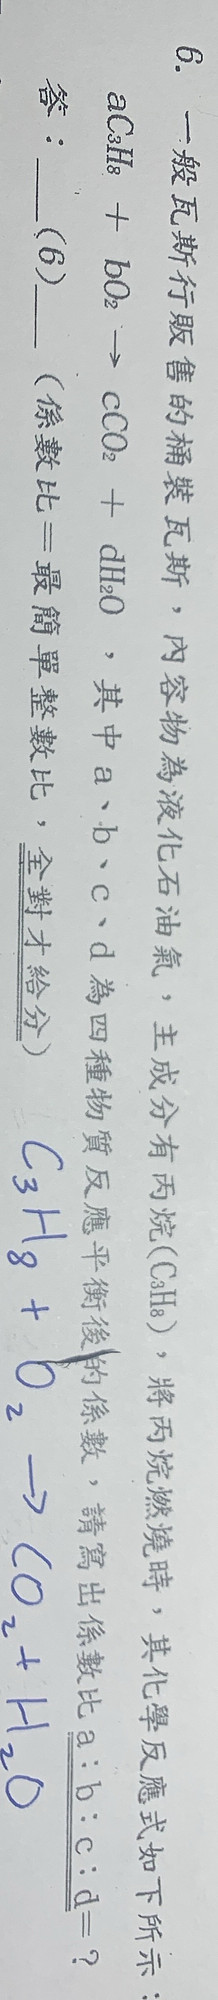 6. 一般瓦斯行販售的桶裝瓦斯，內容物為液化石油氣，主成分有丙烷(C₃H₈)，將丙烷燃燒時，其化學反應式如下所示：
aC₃H₈ + bO₂ → cCO₂ + dH₂O ，其中 a、b、c、d 為四種物質反應平衡後的係數，請寫出係數比 a：b：c：d=？
答：___(6)___ （係數比=最簡單整數比，全對才給分） C₃H₈ + O₂ → CO₂ + H₂O